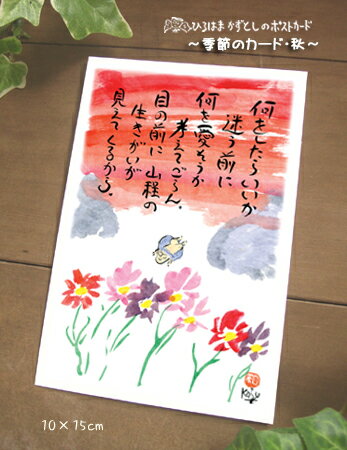 ひろはまかずとしのポストカード
～季節のカード・秋～
何をしたらいいか
迷う前に
何を愛そうか
考えてごらん。
目の前に山程の
生きがいが
見えてくるから。
和
Kazu
10×15cm